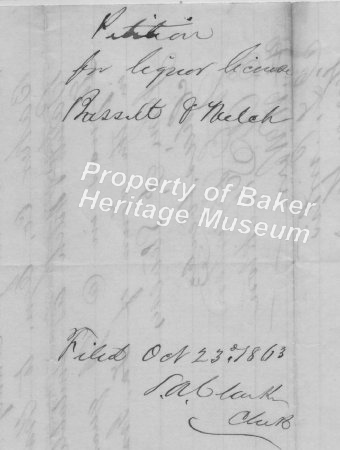 Petition
for liquor license
Bassett & Welch
Property of Baker
Heritage Museum
Filed Oct 23d 1863
S.A. Clarke
Clerk